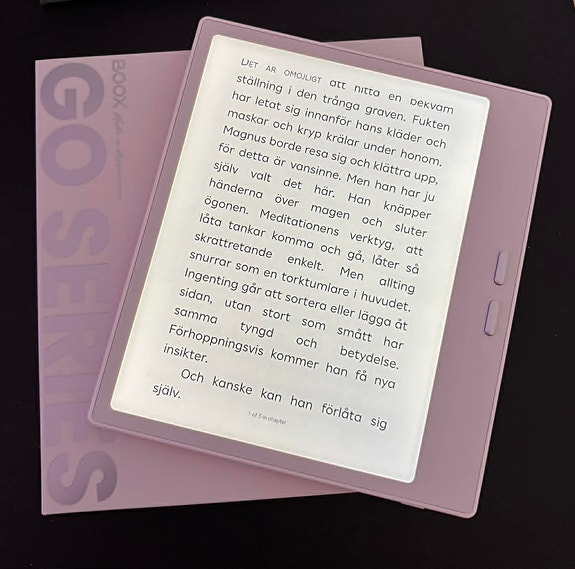 BOOX
GO SERIES
DET ÄR OMÖJLIGT att hitta en bekväm
ställning i den trånga graven. Fukten
har letat sig innanför hans kläder och
maskar och kryp krälar under honom.
Magnus borde resa sig och klättra upp,
för detta är vansinne. Men han har ju
själv valt det här. Han knäpper
händerna över magen och sluter
ögonen. Meditationens verktyg, att
låta tankar komma och gå, låter så
skrattretande enkelt. Men allting
snurrar som en torktumlare i huvudet.
Ingenting går att sortera eller lägga åt
sidan, utan stort som smått har
samma tyngd och betydelse.
Förhoppningsvis kommer han få nya
insikter.
Och kanske kan han förlåta sig
själv.
1 of 5 in chapter